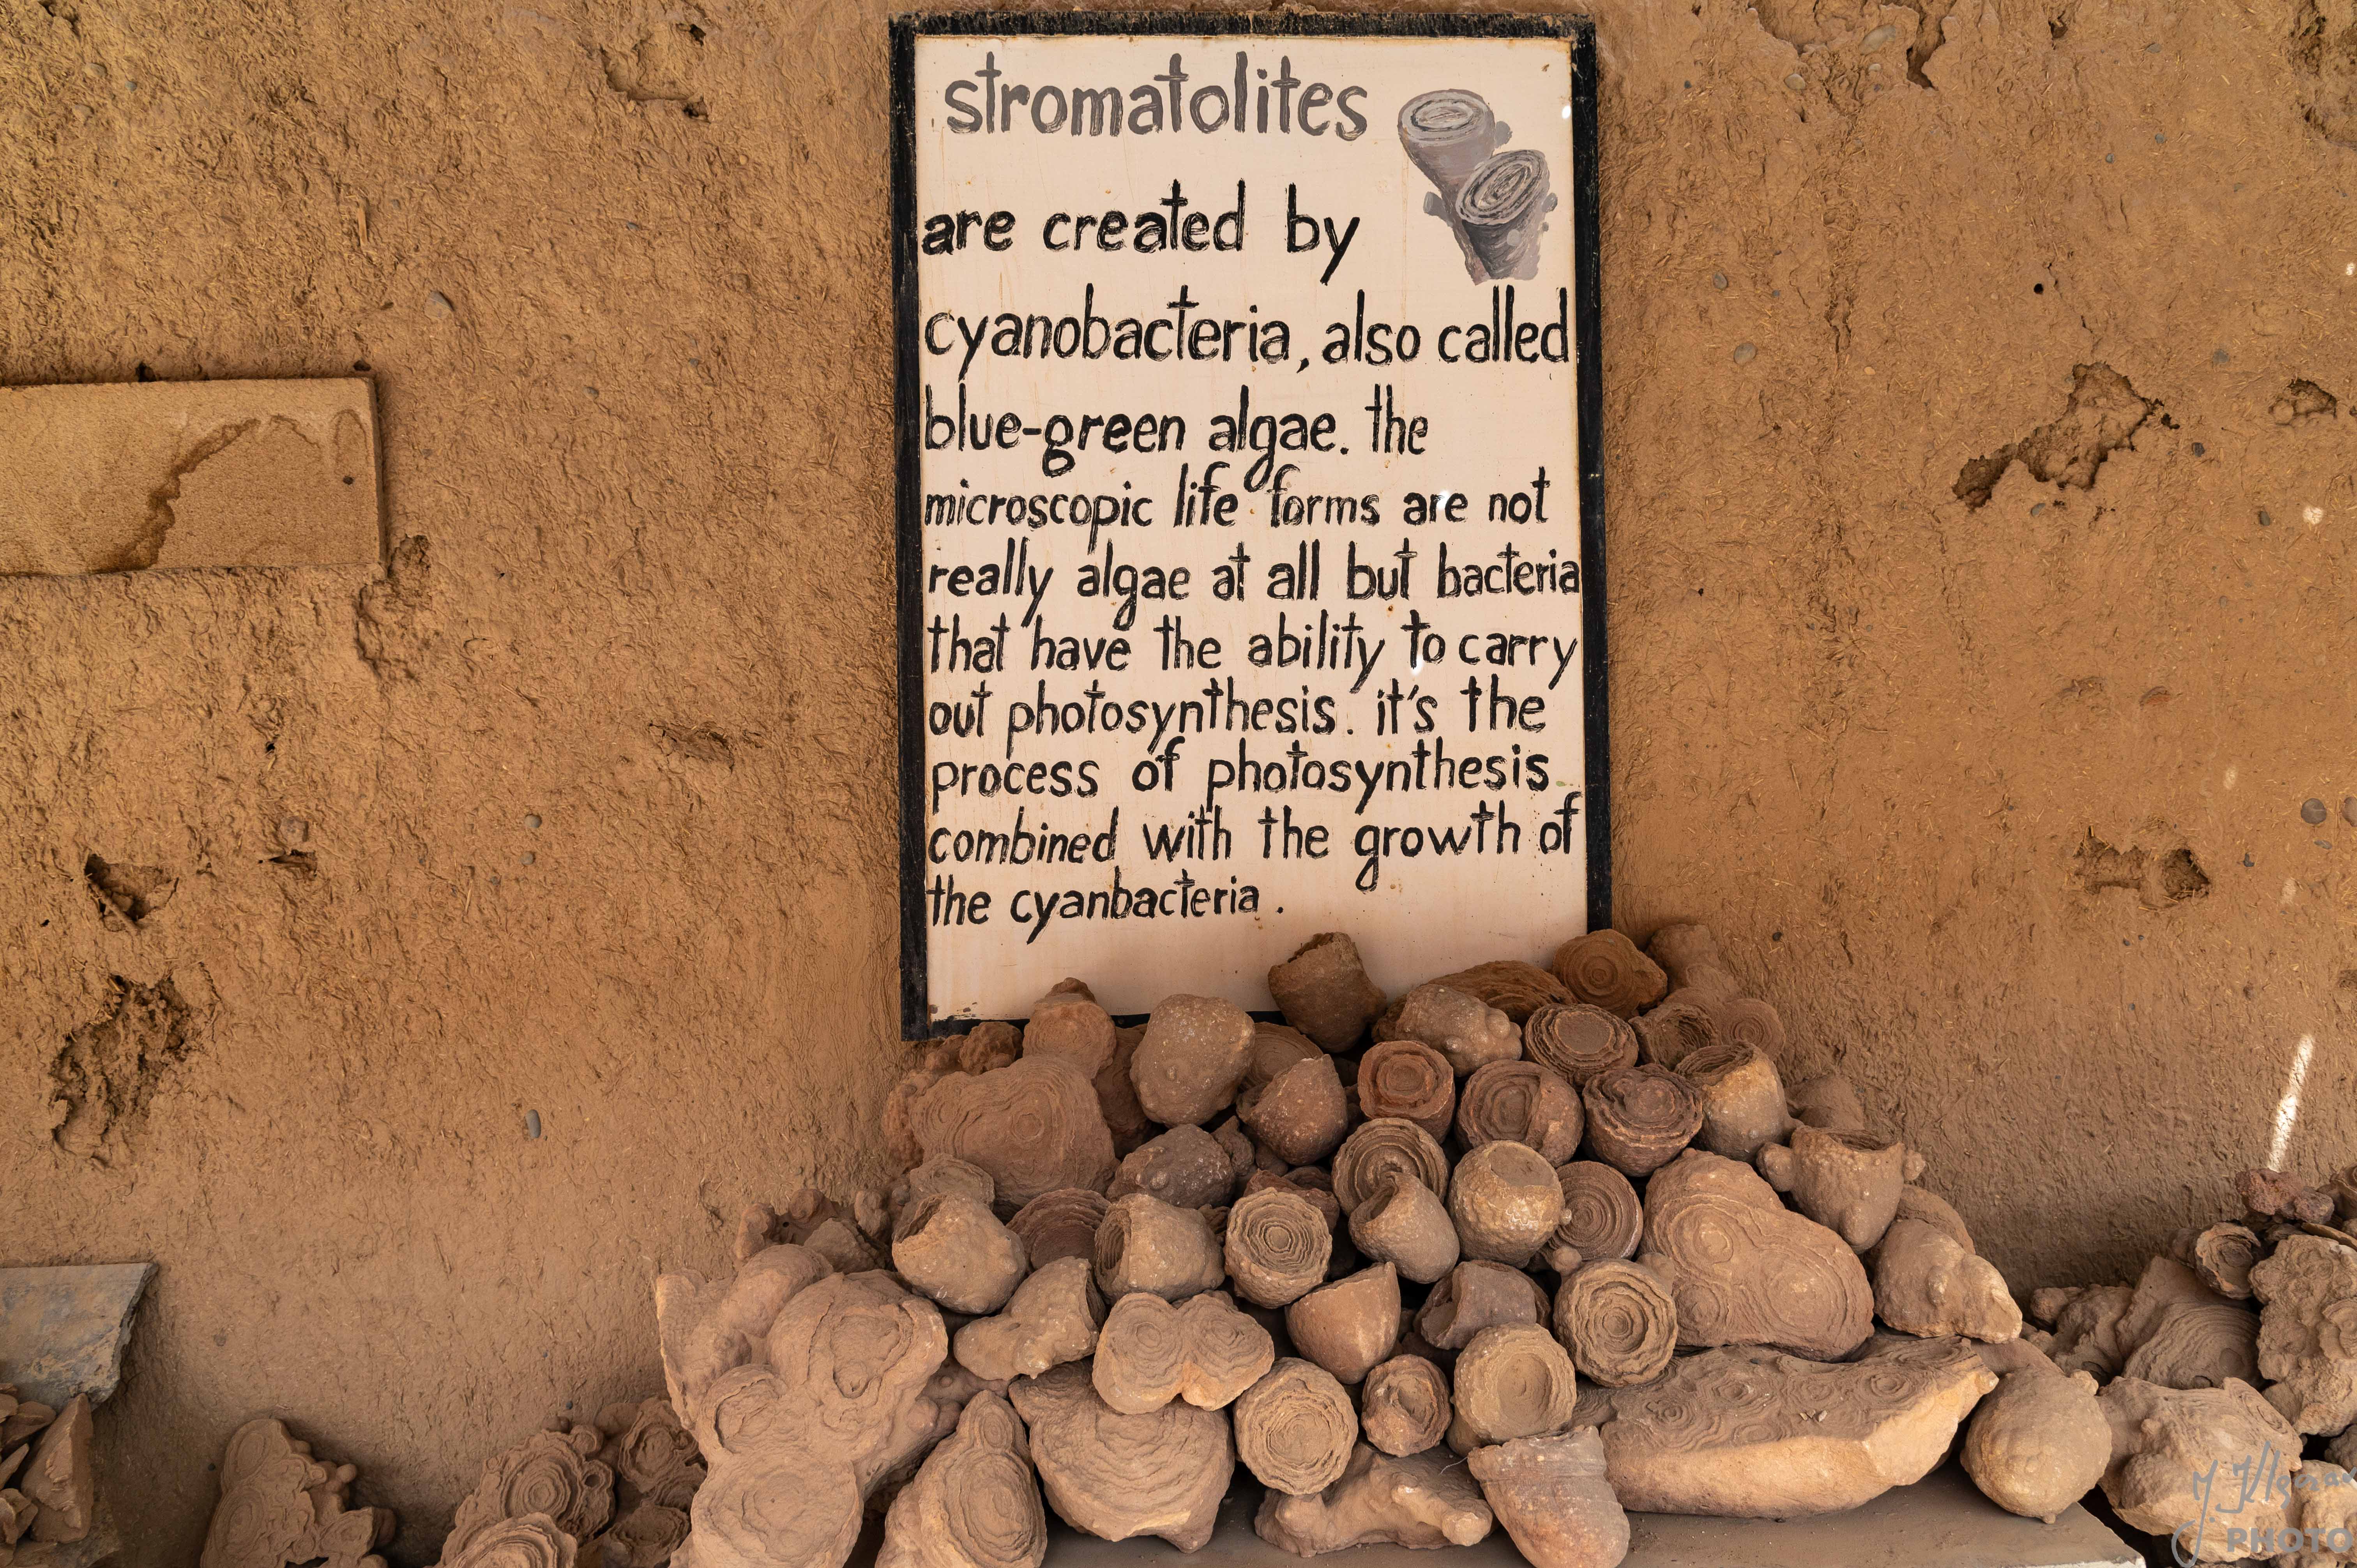 stromatolites
are created by
cyanobacteria, also called
blue-green algae. the
microscopic life forms are not
really algae at all but bacteria
that have the ability to carry
out photosynthesis. it's the
process of photosynthesis
combined with the growth of
the cyanbacteria.
PHOTO